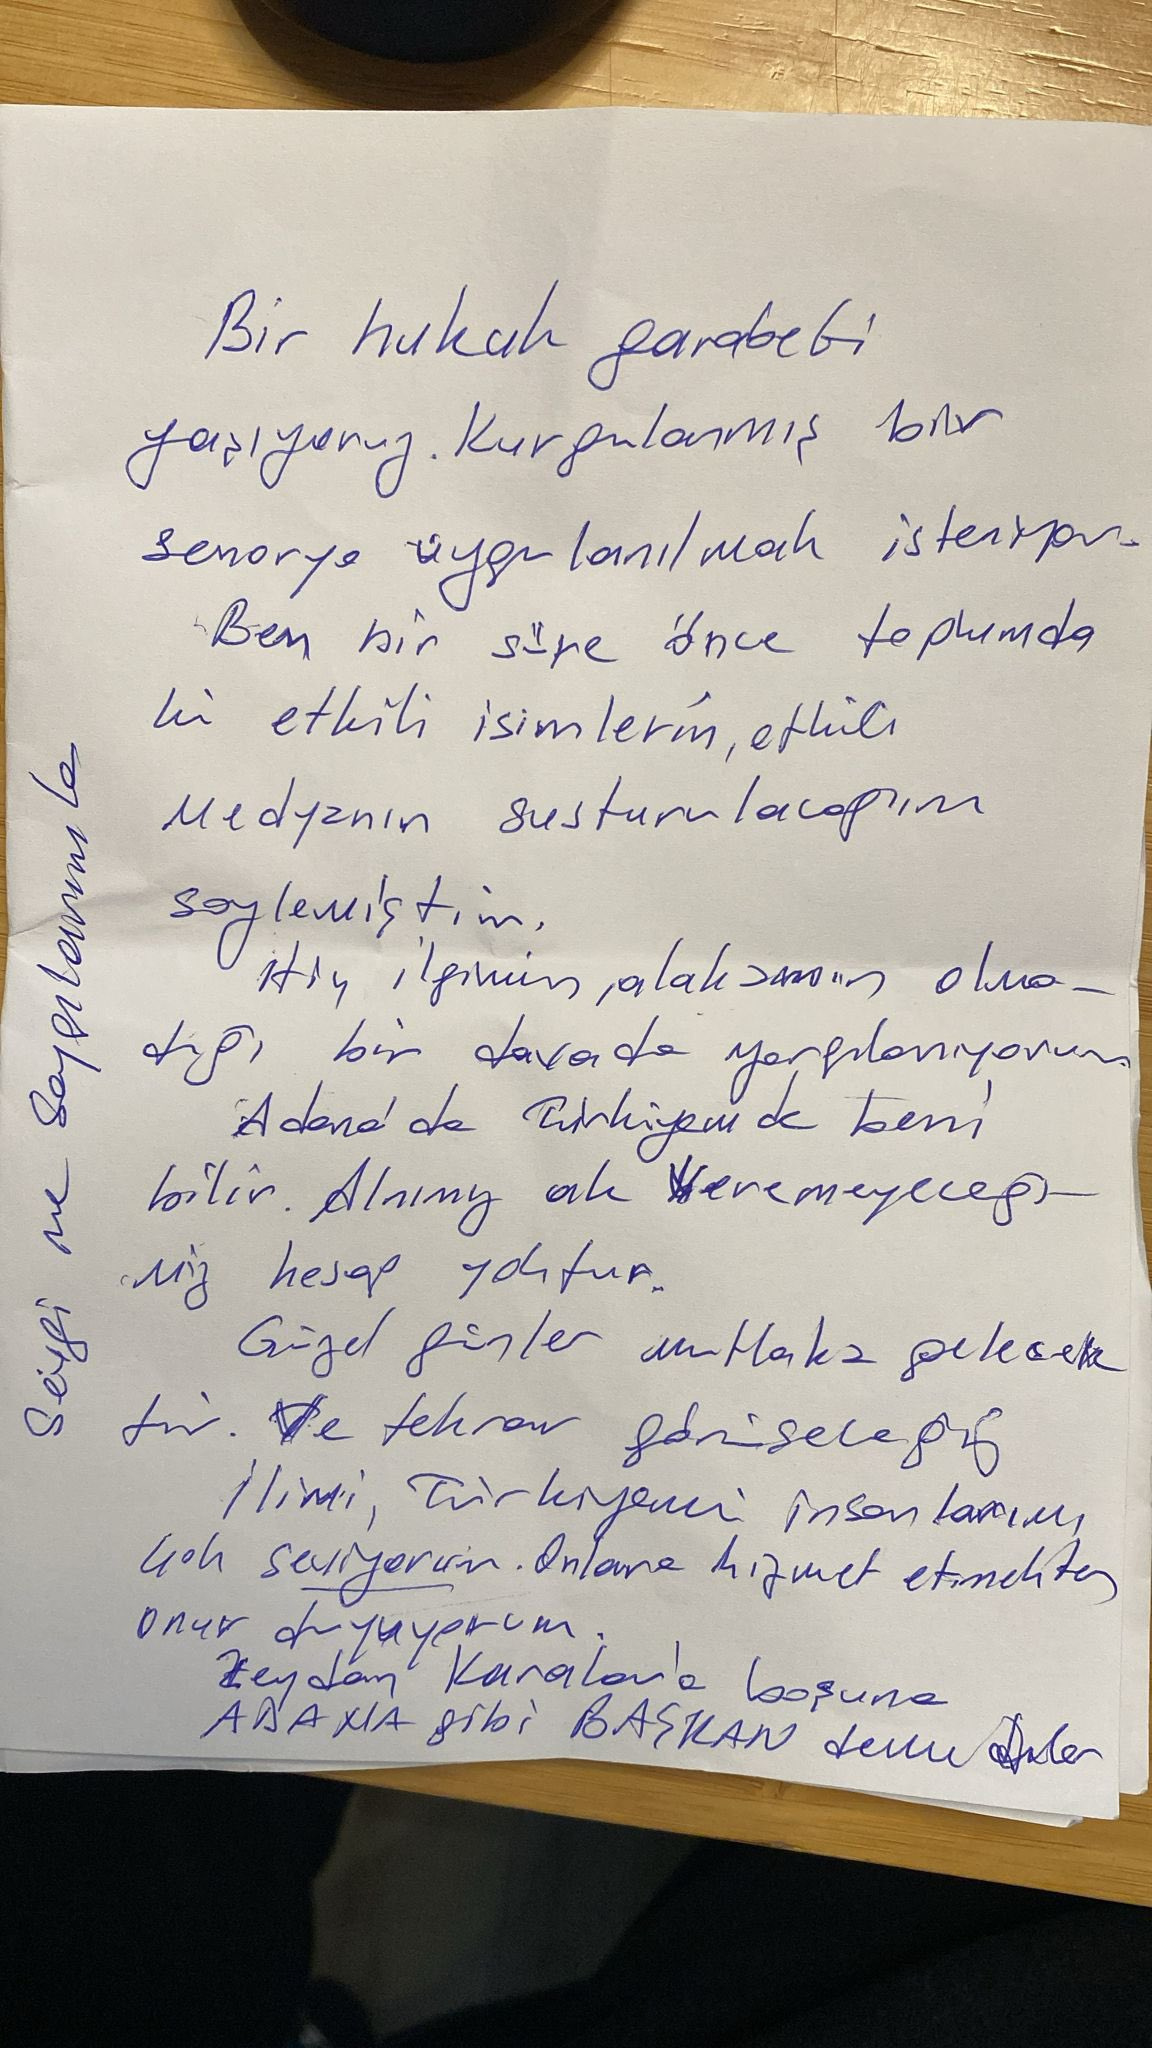 Bir hukuk garabeti
yaşıyoruz. Kurgulanmış bir
senorya uygulanılmak isteniyor.
Ben bir süre önce toplumda
ki etkili isimlerin, etkili
Medyanın susturulacağını
söylemiştim.
Hiç ilgimin, alakamın olma-
dığı bir davada yargılanıyorum.
Adana'da Türkiyemde beni
bilir. Alnımız ak Veremeyeceği-
miz hesap yoktur.
Güzel günler mutlaka gelecek
tir. Ve tekrar görüşeceğiz
İlimi, Türkiyemi insanlarımı
çok seviyorum. Onlara hizmet etmekten
onur duyuyorum.
Zeydan Karalar'a boşuna
ADANA gibi BAŞKAN demediler
Sevgi ve Saygılarımla